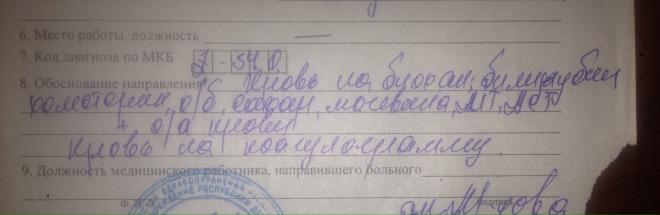 6. Место работы, должность —
7. Код диагноза по МКБ
8. Обоснование направления Кровь на биохим: билирубин
о/б, сахар, мочевина, АЛТ, АСТ
+ о/а крови
Кровь на коагулограмму
9. Должность медицинского работника, направившего больного
ЗДРАВООХРАНЕНИЯ
Ф.И.О. подпись